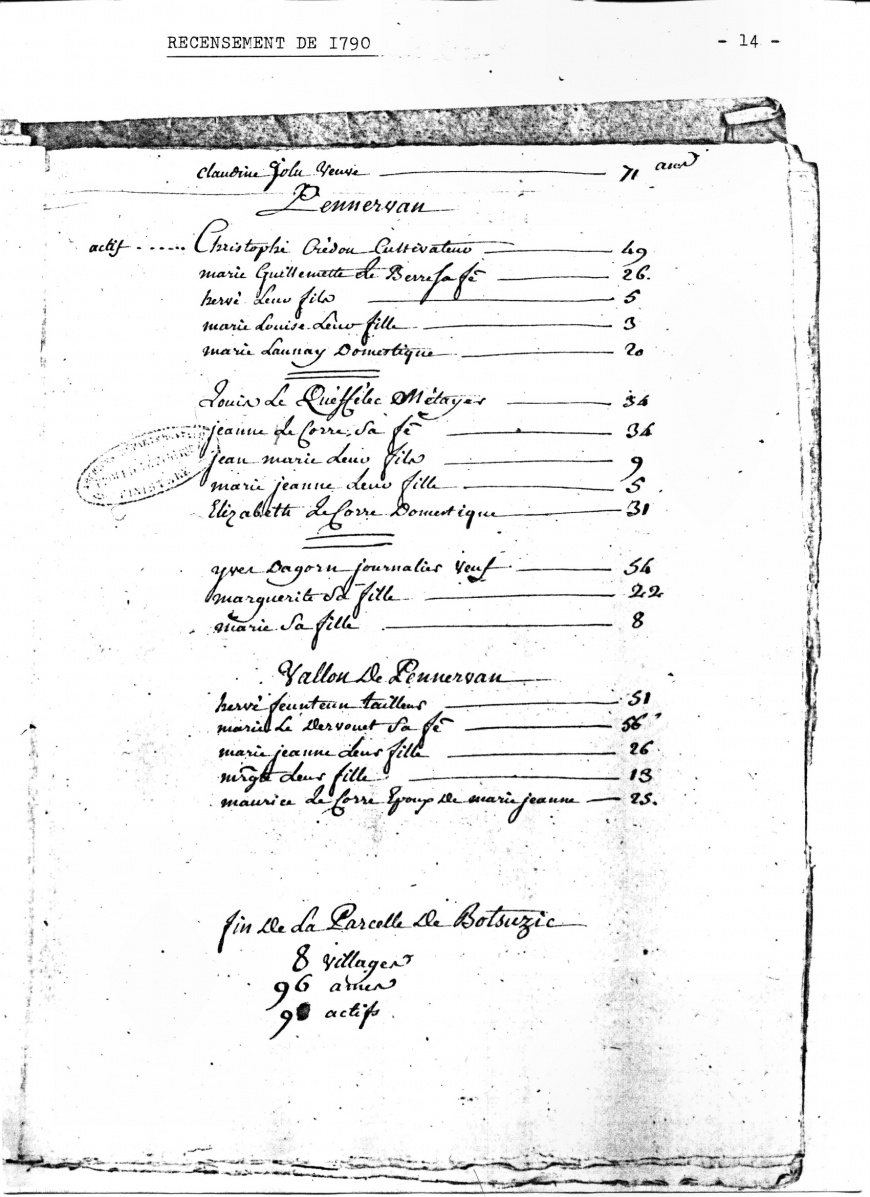 RECENSEMENT DE 1790 - 14 -
claudine jolu veuve 71 ans
Pennervan
actif ...... Christophe Crédou Cultivateur 49
marie Guillemette Le Berre sa fe 26.
hervé Leur fils 5
marie Louise Leur fille 3
marie Launay Domestique 20
Louis Le Quéffélec Métayer 34
jeanne Le Corre Sa fe 34
jean marie Leur fils 9
marie jeanne Leur fille 5
Elizabeth Le Corre Domestique 31
yves Dagorn journalier veuf 54
marguerite Sa fille 22
marie Sa fille 8
Vallon De Pennervan
hervé feunteun tailleur 51
marie Le Dervouet Sa fe 56
marie jeanne Leur fille 26
mrgte Leur fille 13
maurice Le Corre Epoux De marie jeanne 25.
fin De La Parcelle De Botsuzic
8 villages
96 ames
9 actifs
FINISTERE